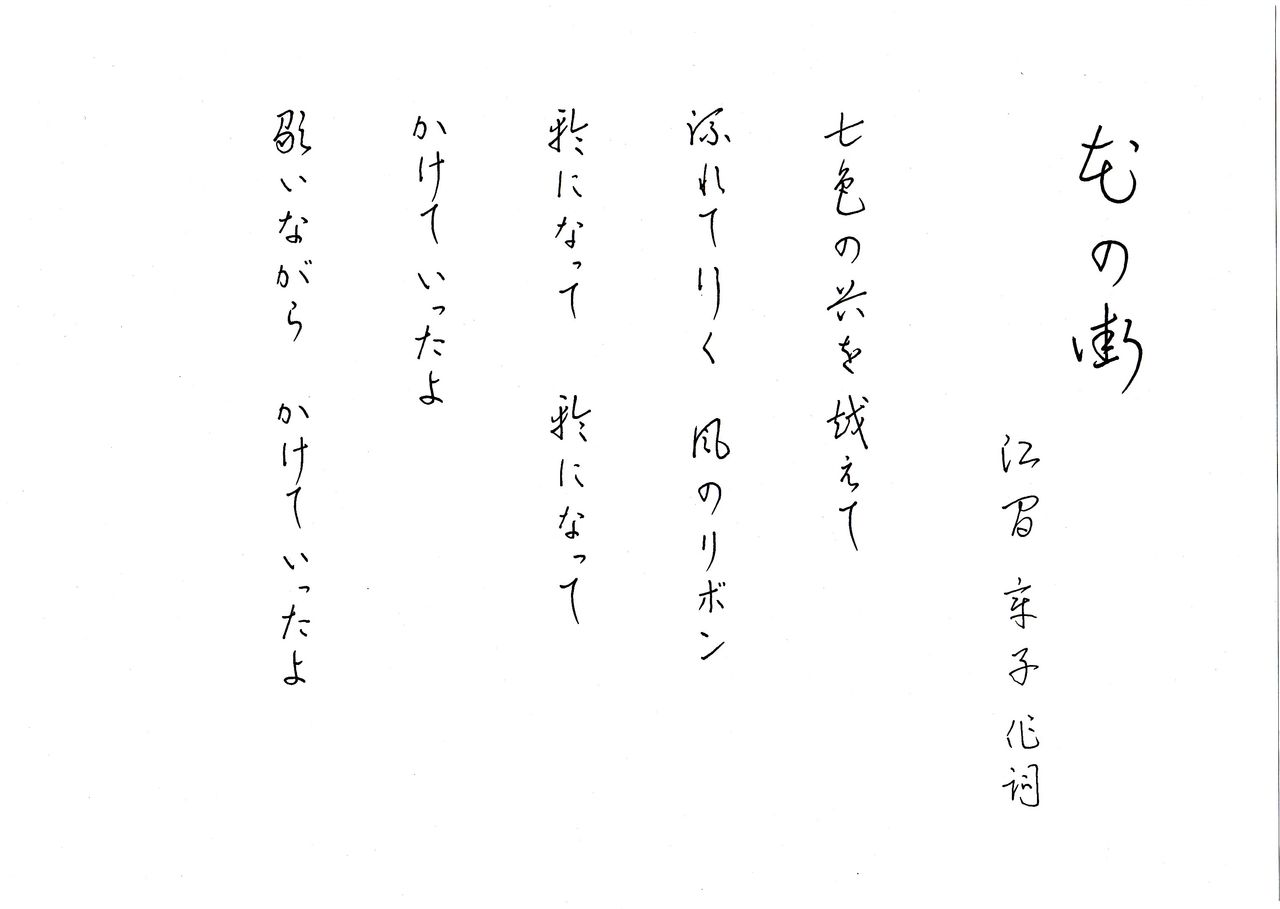 花の街
江間 章子 作詞
七色の谷を越えて
流れて行く 風のリボン
輪になって 輪になって
かけていったよ
歌いながら かけていったよ